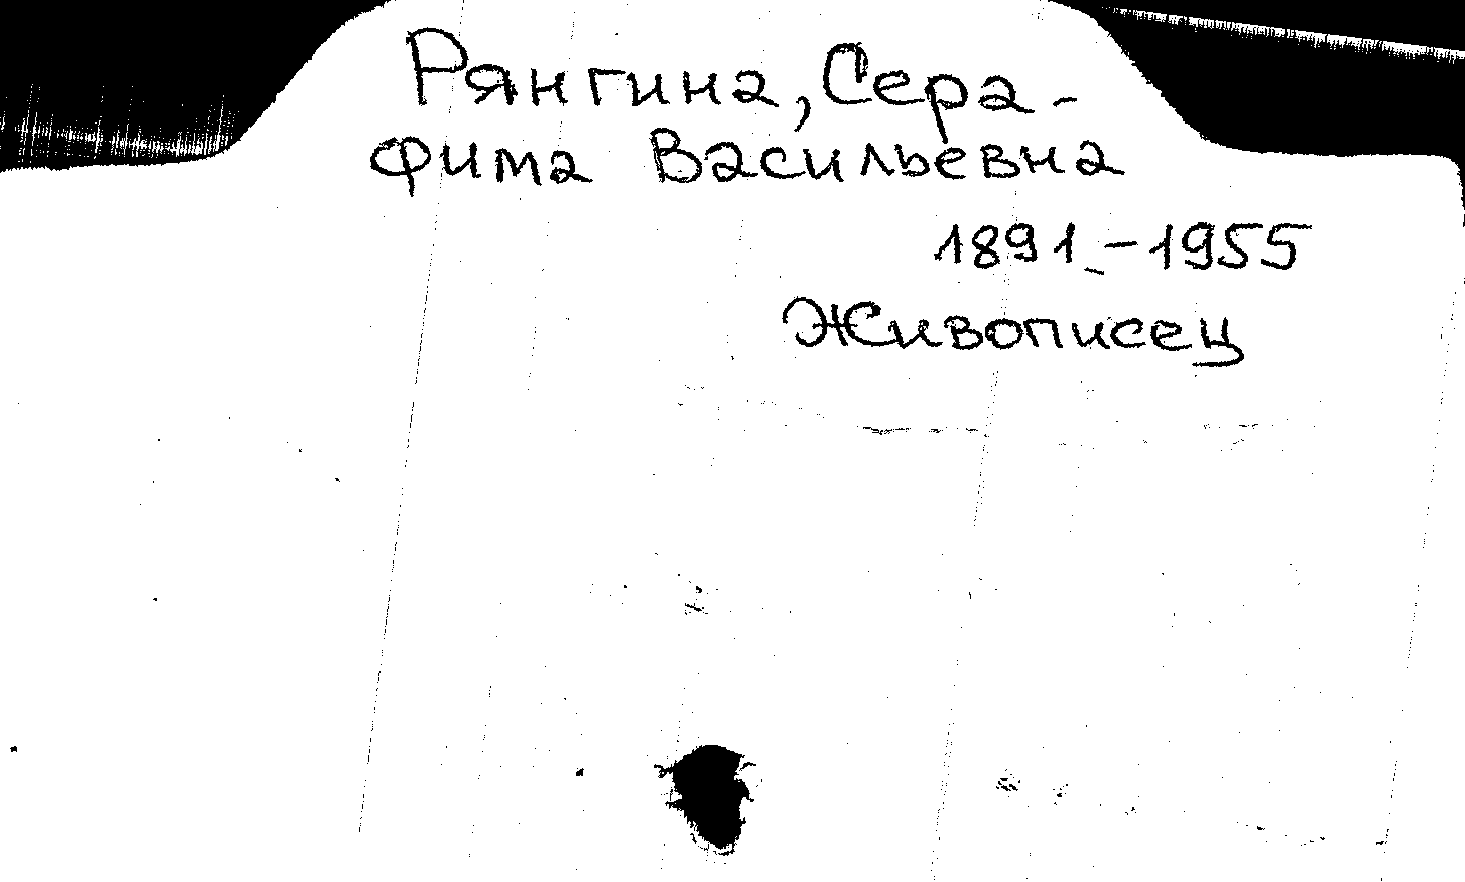 Рянгина, Сера-
фима Васильевна
1891 - 1955
Живописец